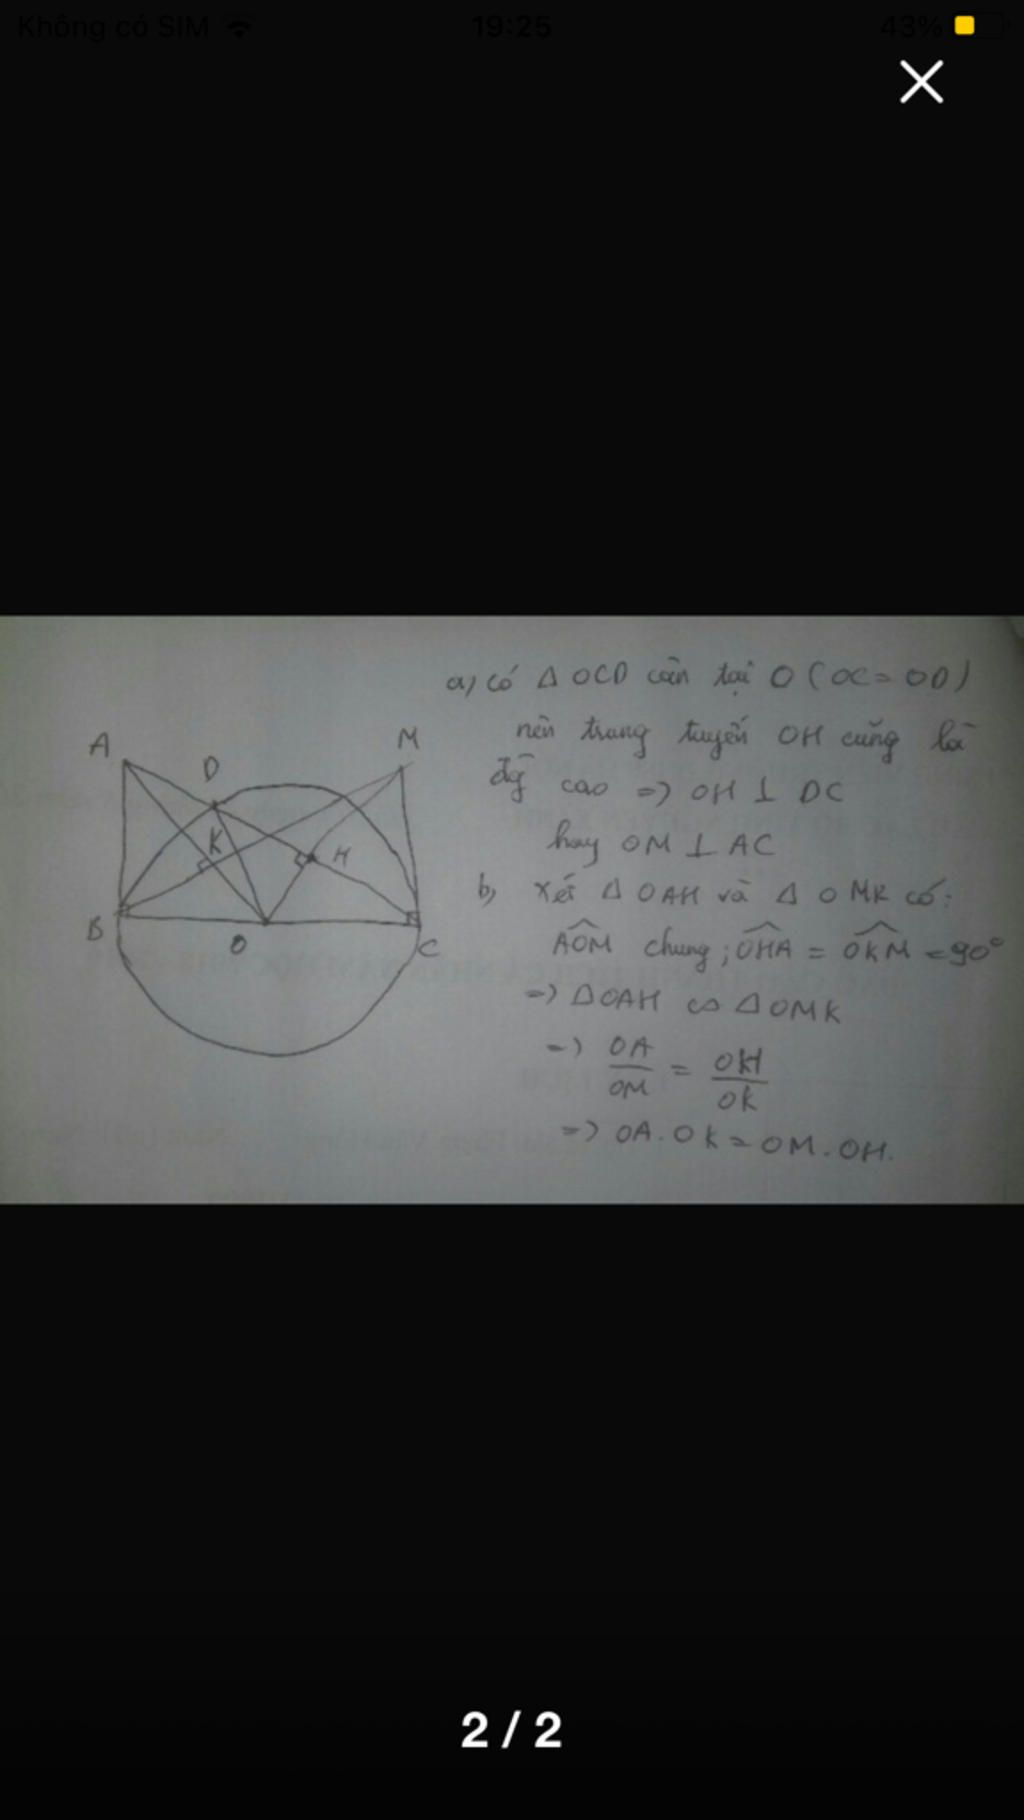 Không có SIM
19:25
43%
a) có Δ OCD cân tại O (OC = OD)
nên trung tuyến OH cũng là
đg cao => OH ⊥ DC
hay OM ⊥ AC
b) xét Δ OAH và Δ OMK có:
AOM chung ; OHA = OKM = 90°
=> ΔOAH ∽ ΔOMK
=> OA/OM = OH/OK
=> OA. OK = OM. OH.
A
M
D
K
H
B
O
C
2 / 2